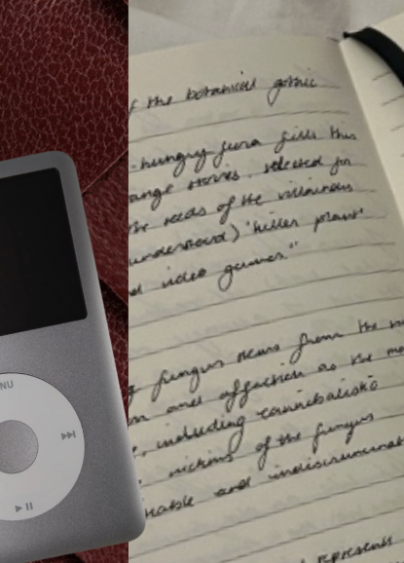 NU
the botanical gothic
-hungry flora fills this
ange stories. selected for
the seeds of the villainous
understood) 'killer plant'
d video games."
fungus news from the
and affection as the
, including cannibalistic
victims of the fungus
and indiscriminat
represents